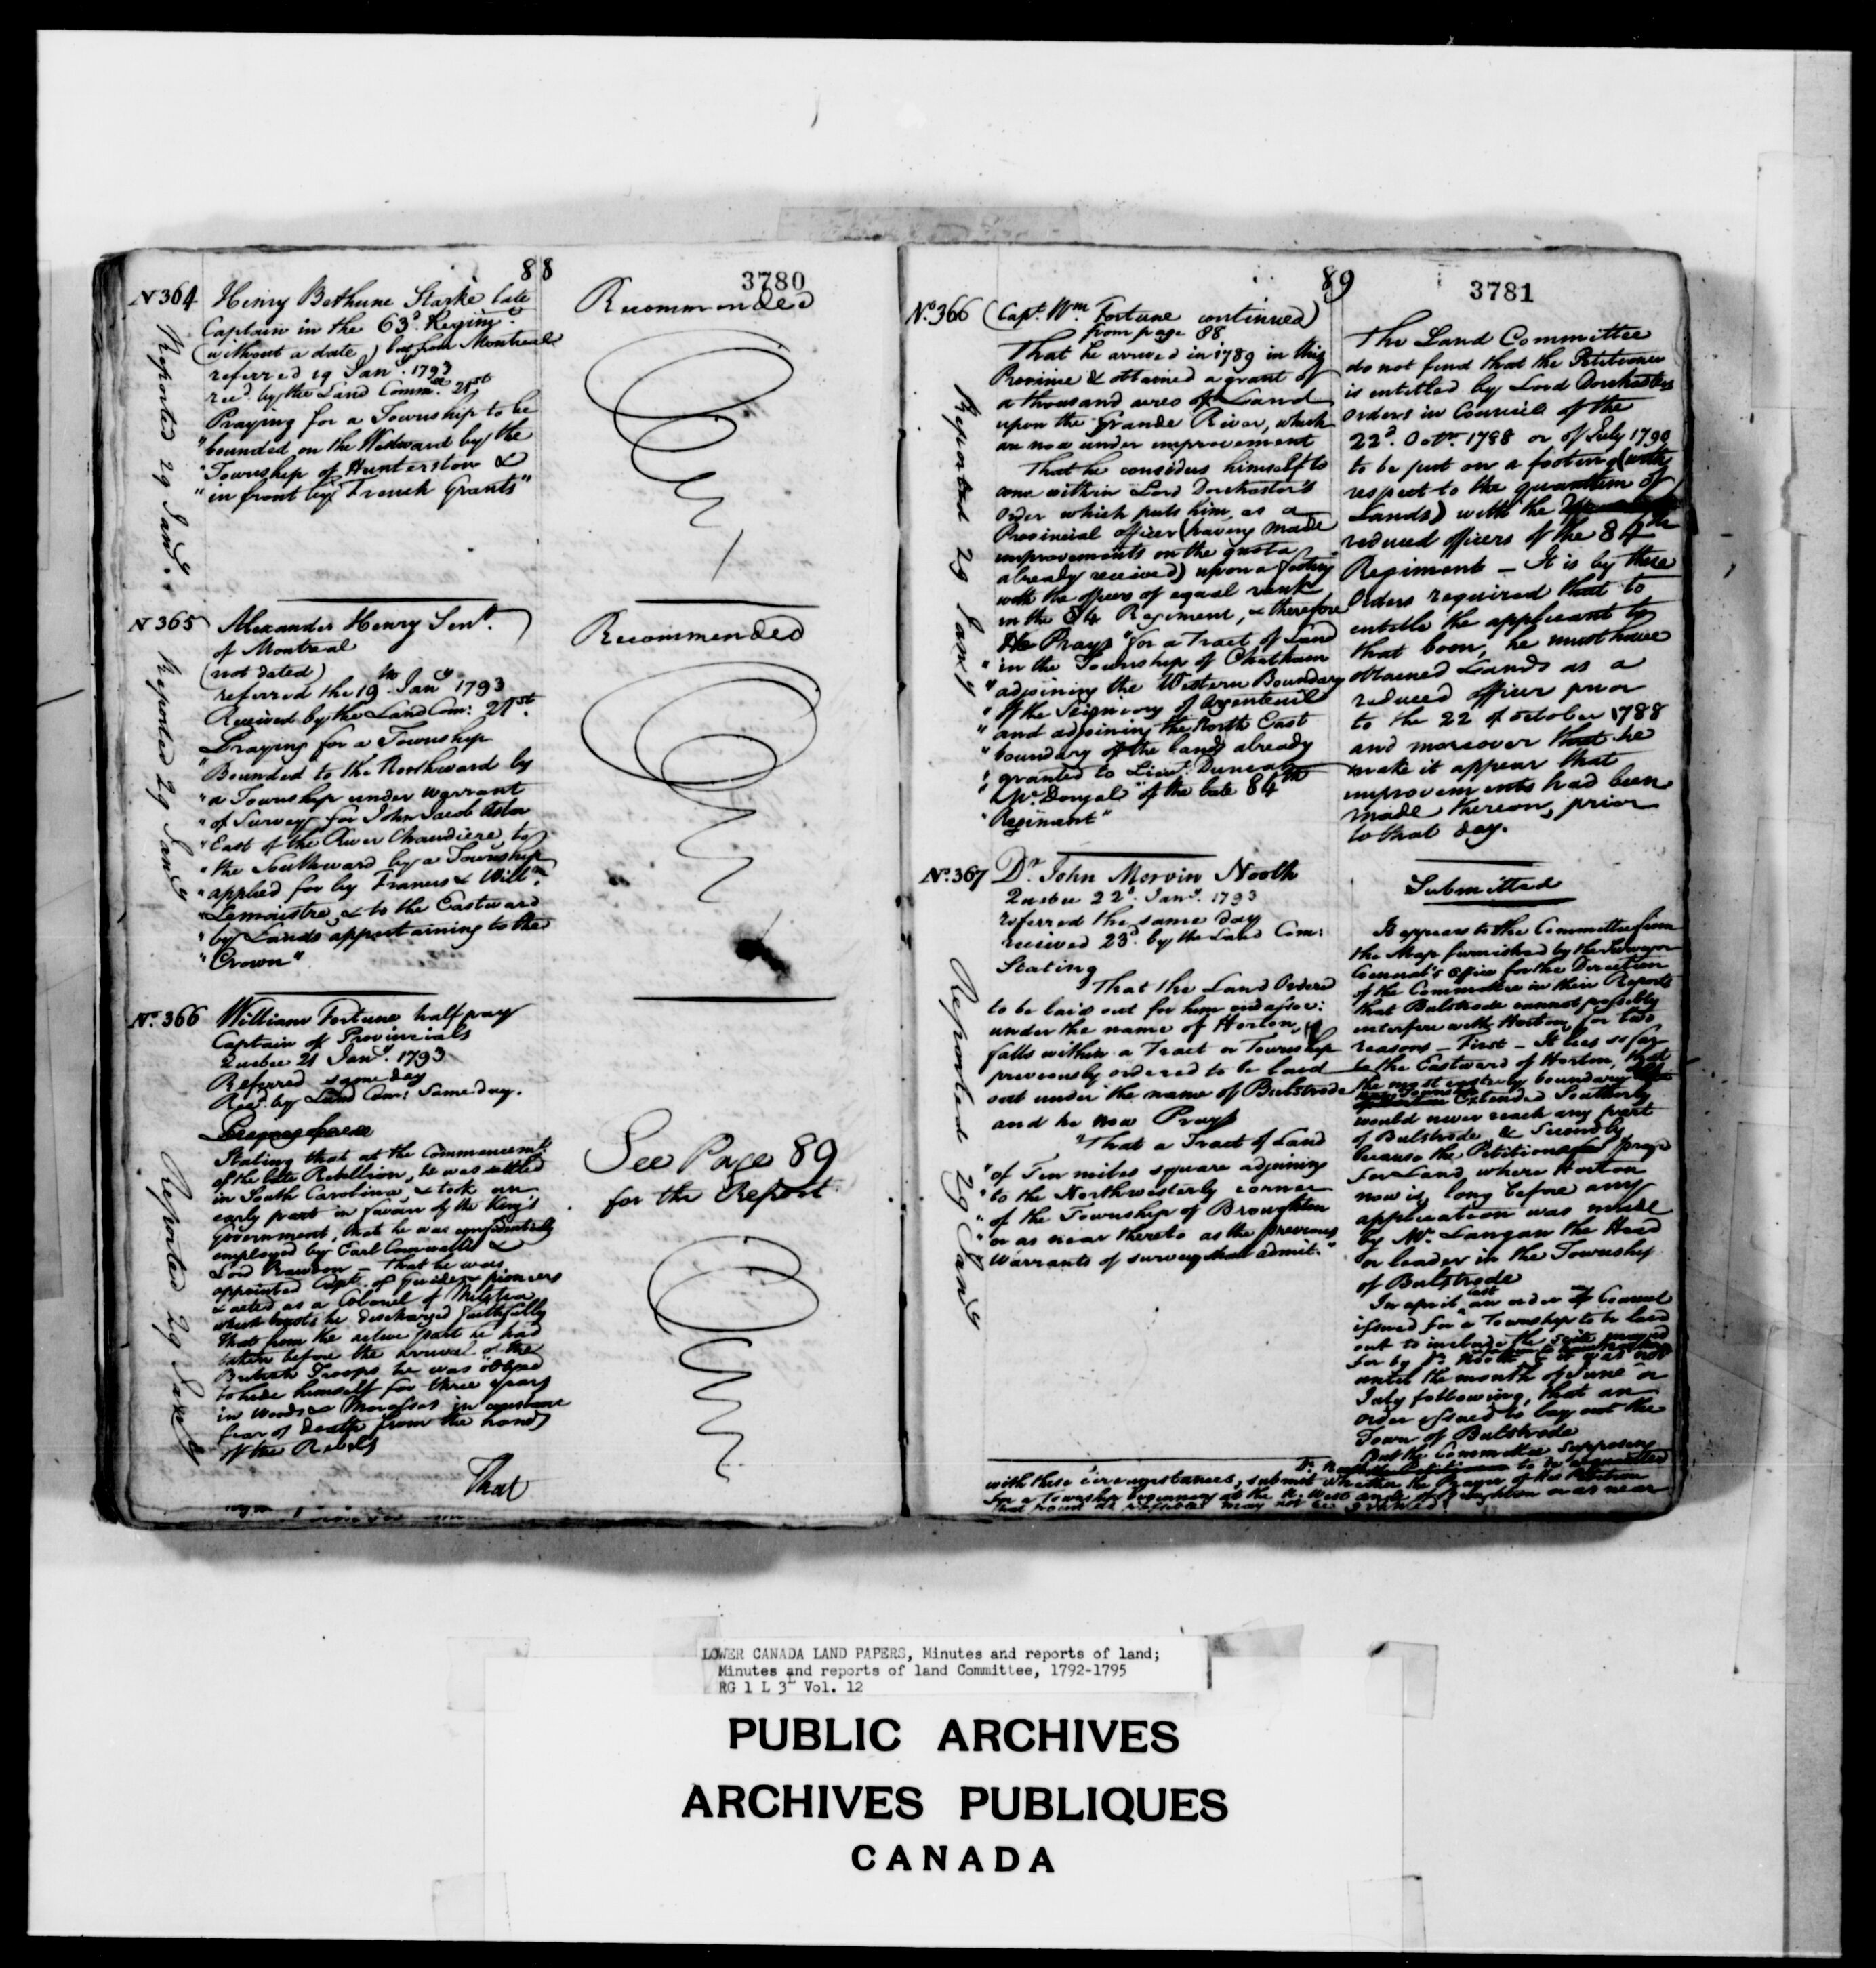 88
3780
N 364
Henry Bethune Starke late
Captain in the 63d. Regimt.
(without a date) but from Montreal
referred 19 Jany. 1793
recd. by the Land Commee. 21st
Praying for a Township to be
"bounded on the Westward by the
"Township of Hunterston &
"in front by French Grants"
Reported 29 Jany.
Recommended
N 365
Alexander Henry Senr.
of Montreal
(not dated)
referred the 19th Jany 1793
Received by the Land Com: 21st.
Praying for a Township
"Bounded to the Northward by
"a Township under warrant
"of Survey for John Jacob Astor
"East of the River Chaudiere to
"the Southward by a Township
"applied for by Francis & Willm.
"Lemaistre, & to the Eastward
"by Lands appertaining to the
"Crown"
Reported 29 Jany
Recommended
No. 366
William Fortune half pay
Captain of Provincials
Quebec 21 Jany. 1793
Referred same day
Recd. by Land Com: Same day.
Stating that at the Commencemt.
of the late Rebellion, he was settled
in South Carolina, & took an
early part in favour of the King's
Government, that he was confidentially
employed by Earl Cornwallis &
Lord Rawdon - That he was
appointed Capt. of Guides & pioneers
& acted as a Colonel of Militia
which trusts he discharged faithfully
that from the active part he had
taken before the arrival of the
British Troops he was obliged
to hide himself for three years
in woods & Morasses in constant
fear of Death from the hands
of the Rebels
That
Reported 29 Jany
See Page 89
for the Report
89
3781
No. 366
(Capt. Wm. Fortune continued)
from page 88
That he arrived in 1789 in this
Province & obtained a grant of
a thousand acres of Land
upon the Grande River, which
are now under improvement
That he considers himself to
come within Lord Dorchester's
Order which puts him, as a
Provincial officer (having made
improvements on the quota
already received) upon a footing
with the officers of equal rank
in the 84 Regiment, & therefore
He Prays "for a Tract of Land
"in the Township of Chatham
"adjoining the Western Boundary
"of the Seigniory of Argenteuil
"and adjoining the North East
"boundary of the land already
"granted to Lieut. Duncan
"McDougal of the late 84th
"Regiment"
Reported 29 Jany
The Land Committee
do not find that the Petitioner
is entitled by Lord Dorchesters
orders in Council of the
22d. Octr. 1788 or of July 1790
to be put on a footing (with
respect to the quantum of
Lands) with the
reduced officers of the 84th
Regiment - It is by these
Orders required that to
entitle the applicant to
that boon, he must have
obtained Lands as a
reduced officer prior
to the 22 of October 1788
and moreover that he
make it appear that
improvements had been
made thereon, prior
to that day.
No. 367
Dr. John Mervin Nooth
Quebec 22d. Jany. 1793
referred the same day
received 23d. by the Land Com:
Stating
That the Land Ordered
to be laid out for him and assoc:
under the name of Horton,
falls within a Tract or Township
previously ordered to be laid
out under the name of Bulstrode
and he now Prays
"That a Tract of Land
"of Ten miles square adjoining
"to the Northwesterly corner
"of the Township of Broughton
"or as near thereto as the previous
Warrants of survey shall admit."
Reported 29 Jany
Submitted
It appears to the Committee from
the Map furnished by the Surveyor
General's Office for the Direction
of the Committee in their Reports
that Bulstrode cannot possibly
interfere with Horton, for two
reasons - First - It lies so far
to the Eastward of Horton, that
the most easterly boundary
extended Southerly
would never reach any part
of Bulstrode & Secondly
because the Petitioner prayed
for Land where Horton
now is, long before any
application was made
by Mr. Langan the Head
or leader in the Township
of Bulstrode
In april last an order of Council
issued for a Township to be laid
out to include the
for by Dr. Nooth & it was not
until the month of June or
July following, that an
order issued to lay out the
Town of Bulstrode
But the Committee supposing
to be acquainted
with these circumstances, submit whether the Prayer of his Petition
for a Township beginning at the N. West angle of Broughton or as near
that may not be granted.
LOWER CANADA LAND PAPERS, Minutes and reports of land;
Minutes and reports of land Committee, 1792-1795
RG 1 L 3L Vol. 12
PUBLIC ARCHIVES
ARCHIVES PUBLIQUES
CANADA